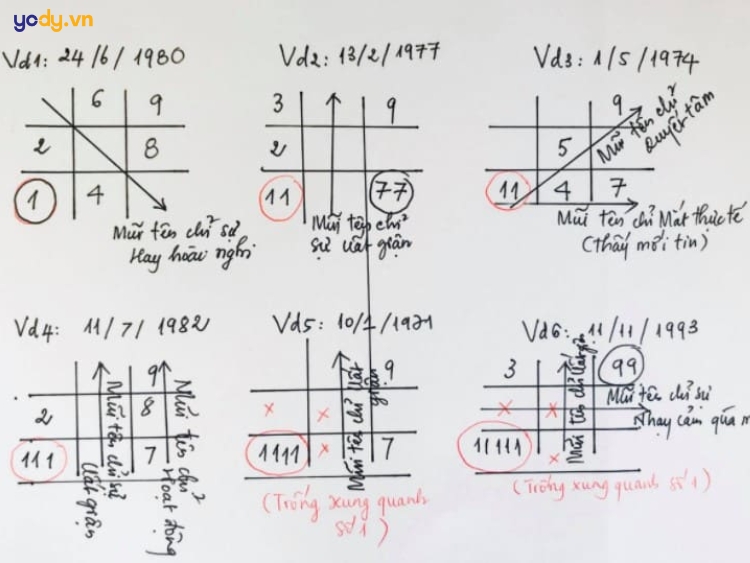 yody.vn
Vd1: 24/6/1980
6 9
2 8
1 4
Mũi tên chỉ sự
Hay hoài nghi
Vd2: 13/2/1977
3 9
2
11 77
Mũi tên chỉ
sự uất giận
Vd3: 1/5/1974
9
5
11 4 7
Mũi tên chỉ
quyết tâm
Mũi tên chỉ Mất thực tế
(thấy mới tin)
Vd4: 11/7/1982
9
2 8
111 7
Mũi tên chỉ sự
Uất giận
Mũi tên chỉ
Hoạt động
Vd5: 10/1/1971
9
x x
1111 x 7
Mũi tên chỉ Uất
giận
(Trống xung quanh
số 1)
Vd6: 11/11/1993
3 99
x x
11111 x
Mũi tên chỉ Uất giận
Mũi tên chỉ sự
Nhạy cảm quá
(Trống xung quanh số 1)